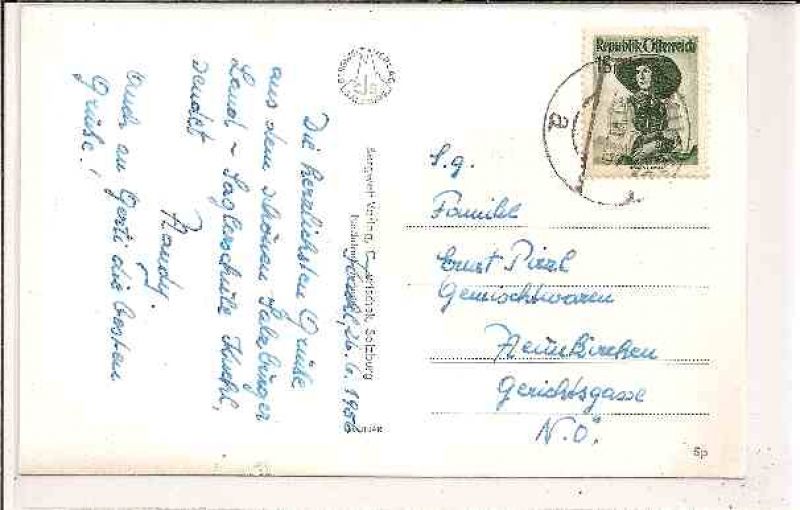 Kuchl, 26. 6. 1956
Die herzlichsten Grüße
aus dem schönen Salzburger
Land - Säglerschule Kuchl,
sendet
Auch an Gerti die besten
Grüße!
Republik Österreich
a
S. g.
Familie
Ernst Pirzl
Gemischtwaren
Neunkirchen
Gerichtsgasse
N. Ö.
Salzburg
Sp